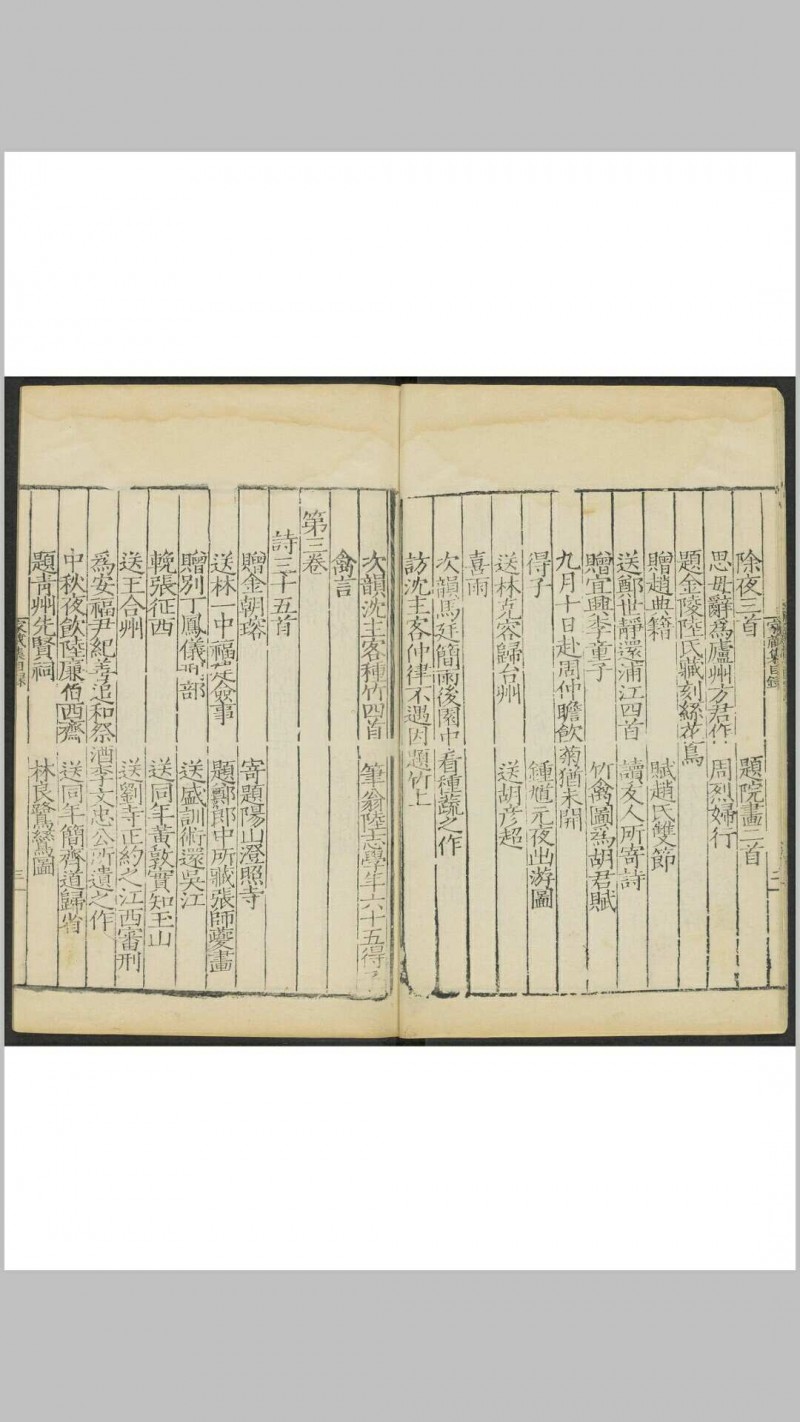 家藏集目錄 二
除夜三首 題院畫二首
思母辭爲廬州方君作 周烈婦行
題金陵陸氏藏刻絲花鳥
贈趙典籍 賦趙氏雙節
送鄭世靜還浦江四首 讀友人所寄詩
贈宜興李童子 竹禽圖爲胡君賦
九月十日赴周仲瞻飲菊猶未開
得子 鍾馗元夜出游圖
送林克容歸台州 送胡彦超
喜雨
次韻馬廷簡雨後園中看種蔬之作
訪沈主客仲律不遇因題竹上
次韻沈主客種竹四首 筆翁陸志學年六十五得子
禽言
第三卷
詩三十五首
贈金朝瑢 寄題陽山澄照寺
送林一中福建僉事 題鄭郎中所藏張師夔畫
贈別丁鳳儀 部 送盛訓術還吳江
輓張征西 送同年黃敦實知玉山
送王合州 送劉寺正約之江西審刑
爲安福尹紀善追和祭酒李文忠公所遺之作
中秋夜飲陸廉伯西齋 送同年簡齊道歸省
題青州先賢祠 林良鷺鷥圖
家藏集目錄 三